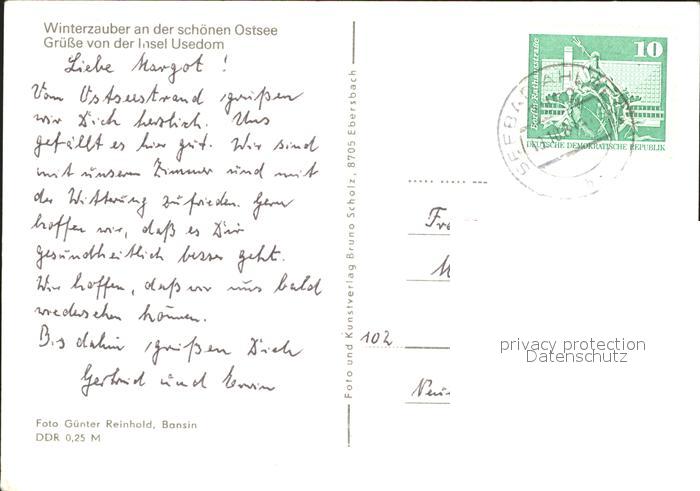 Winterzauber an der schönen Ostsee
Grüße von der Insel Usedom
Liebe Margot !
Vom Ostseestrand grüßen
wir Dich herzlich. Uns
gefällt es hier gut. Wir sind
mit unserem Zimmer und mit
der Witterung zufrieden. Gern
hoffen wir, daß es Dir
gesundheitlich besser geht.
Wir hoffen, daß wir uns bald
wiedersehen können.
Bis dahin grüßen Dich
Gertrud und Erwin
Foto Günter Reinhold, Bansin
DDR 0,25 M
Foto und Kunstverlag Bruno Scholz, 8705 Ebersbach
10
Berlin, Rathausstraße
DEUTSCHE DEMOKRATISCHE REPUBLIK
SEEBAD AH
Fr
M
102
Neu
privacy protection
Datenschutz